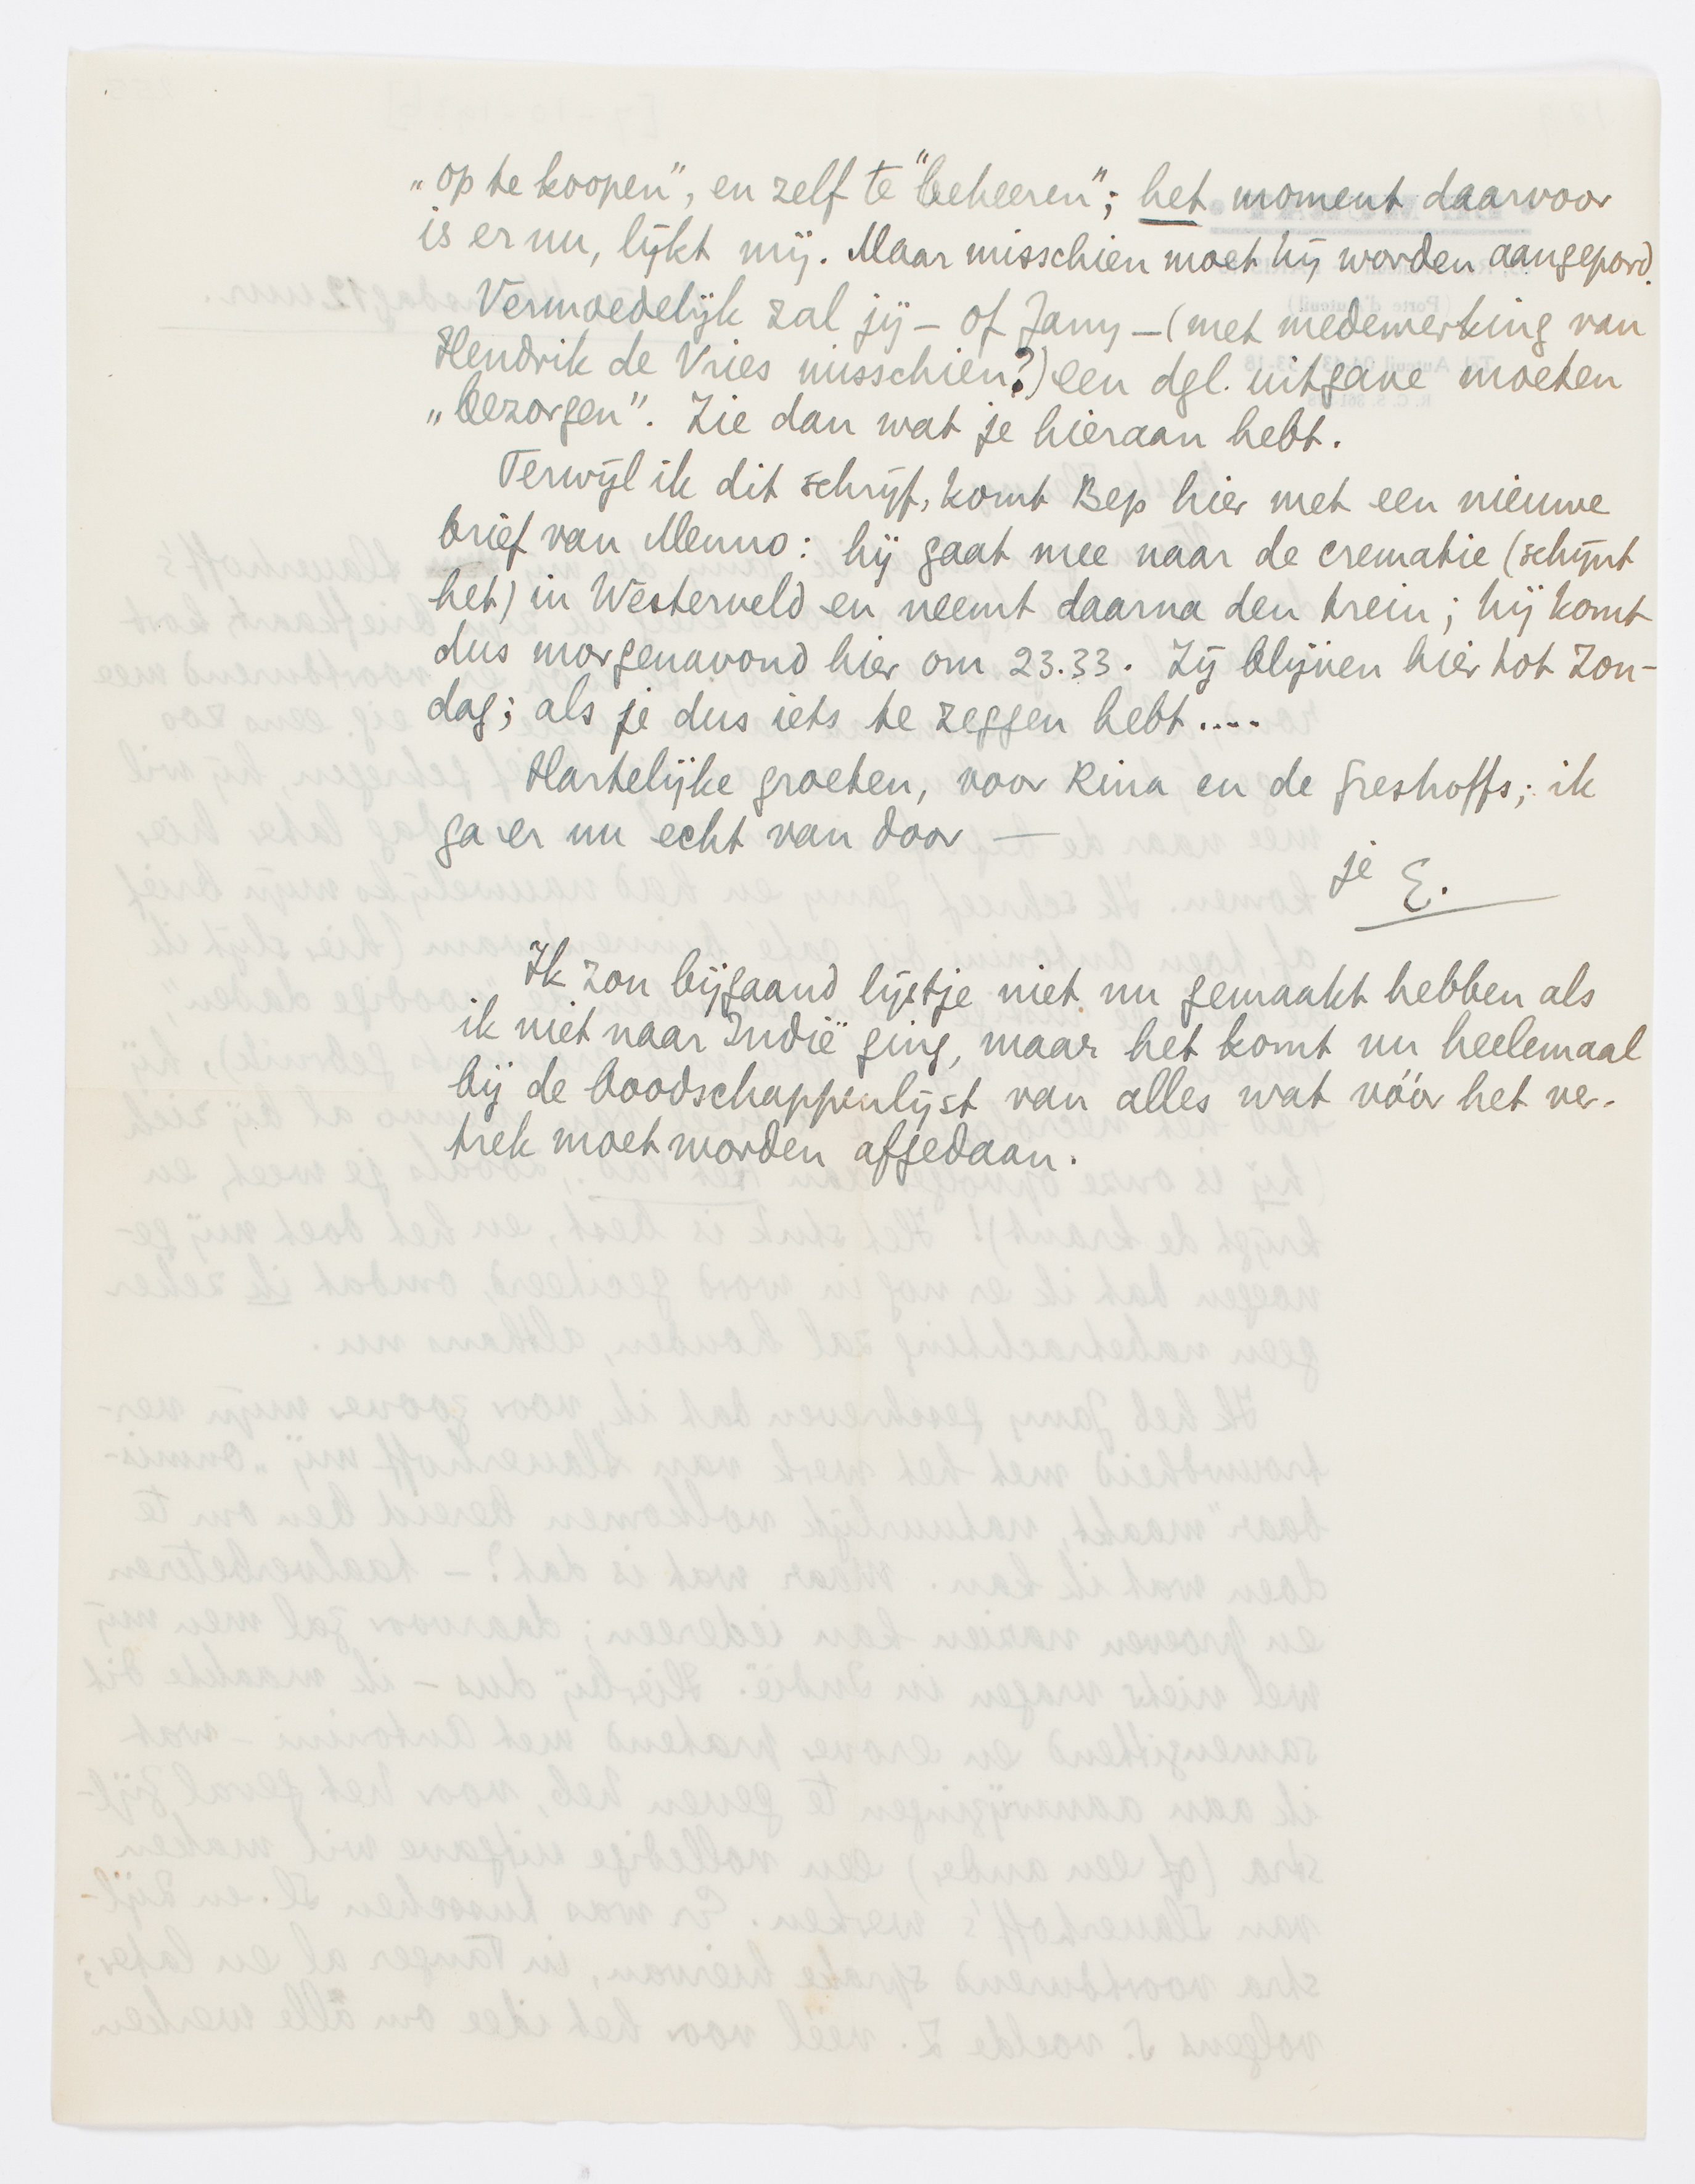 „op te koopen", en zelf te "beheeren"; het moment daarvoor
is er nu, lijkt mij. Maar misschien moet hij worden aangepord.
Vermoedelijk zal jij – of Jany – (met medewerking van
Hendrik de Vries misschien?) een dgl. uitgave moeten
„bezorgen". Zie dan wat je hieraan hebt.
Terwijl ik dit schrijf, komt Bep hier met een nieuwe
brief van Menno: hij gaat mee naar de crematie (schijnt
het) in Westerveld en neemt daarna den trein; hij komt
dus morgenavond hier om 23.33. Zij blijven hier tot Zon-
dag; als je dus iets te zeggen hebt....
Hartelijke groeten, voor Rina en de Greshoffs; ik
ga er nu echt van door —
je E.
Ik zou bijgaand lijstje niet nu gemaakt hebben als
ik niet naar Indië ging, maar het komt nu heelemaal
bij de boodschappenlijst van alles wat vóór het ver-
trek moet worden afgedaan.